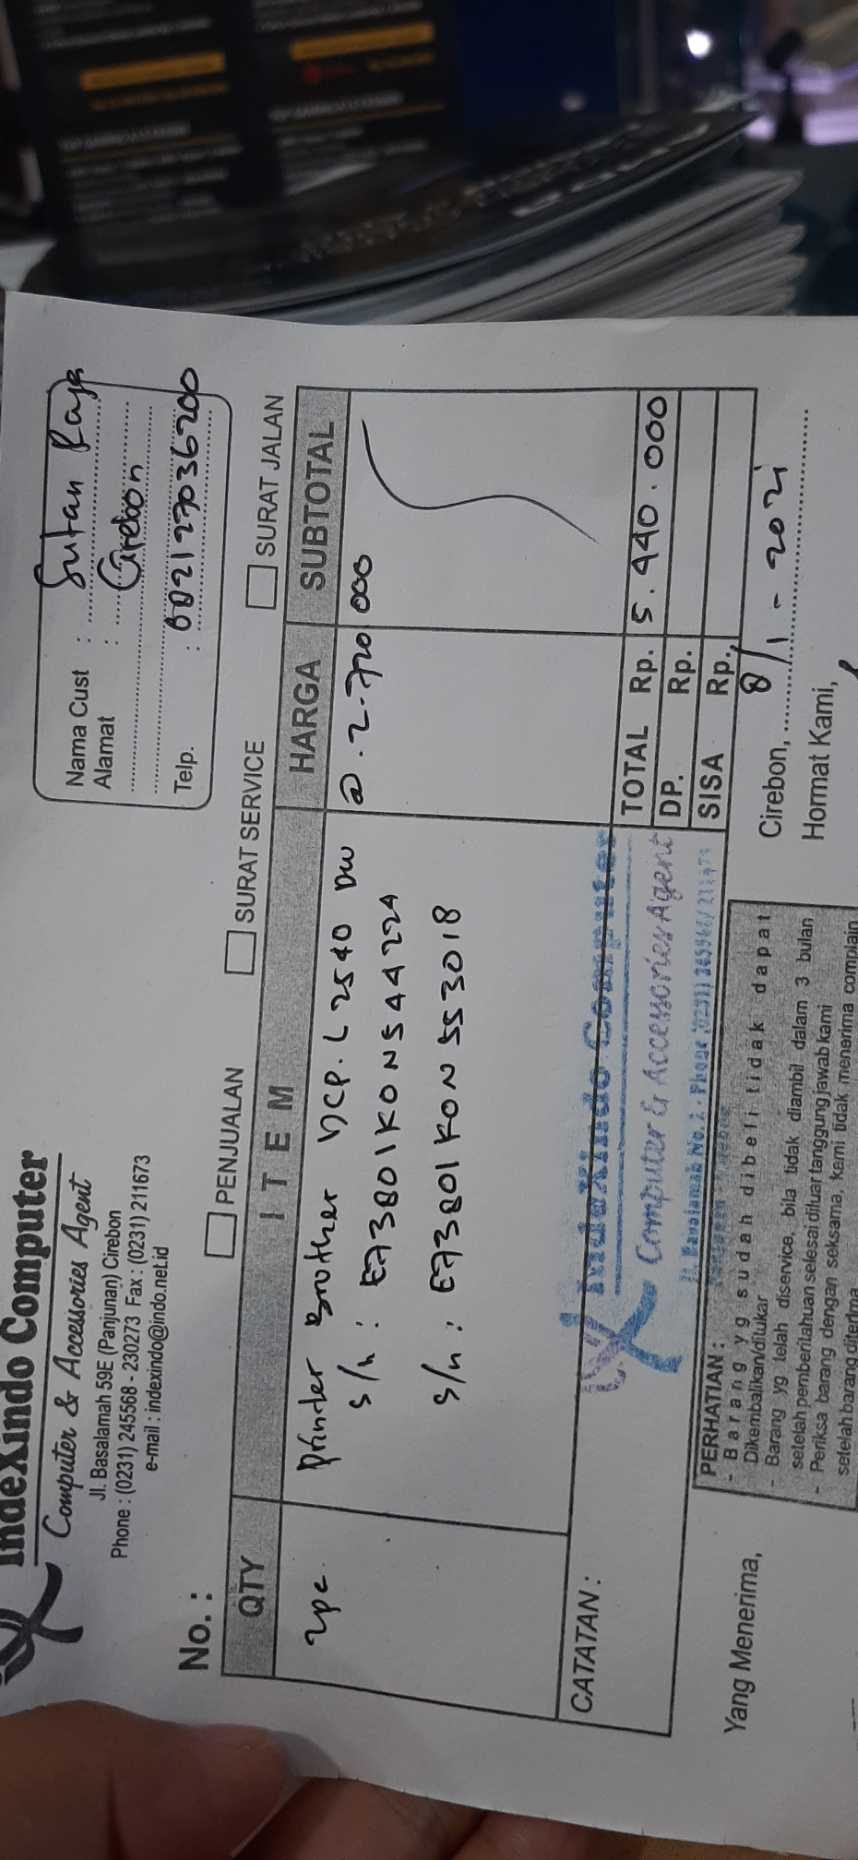 IndeXindo Computer
Computer & Accessories Agent
Jl. Basalamah 59E (Panjunan) Cirebon
Phone : (0231) 245568 - 230273 Fax : (0231) 211673
e-mail : indexindo@indo.net.id
Nama Cust : Sutan Raja
Alamat : Cirebon
Telp. : 082127036200
No. :
PENJUALAN SURAT SERVICE SURAT JALAN
QTY ITEM HARGA SUBTOTAL
2pc Printer Brother DCP. L 2540 DW @. 2.720.000
s/n : E73801K0N544224
s/n : E73801K0N553018
CATATAN :
TOTAL Rp. 5.440.000
DP. Rp.
SISA Rp.
IndeXindo Computer
Computer & Accessories Agent
PERHATIAN :
- Barang yg sudah dibeli tidak dapat
Dikembalikan/ditukar
- Barang yg telah diservice, bila tidak diambil dalam 3 bulan
setelah pemberitahuan selesai diluar tanggung jawab kami
- Periksa barang dengan seksama, kami tidak menerima complain
setelah barang diterima
Cirebon, 8/1 - 2021
Yang Menerima,
Hormat Kami,